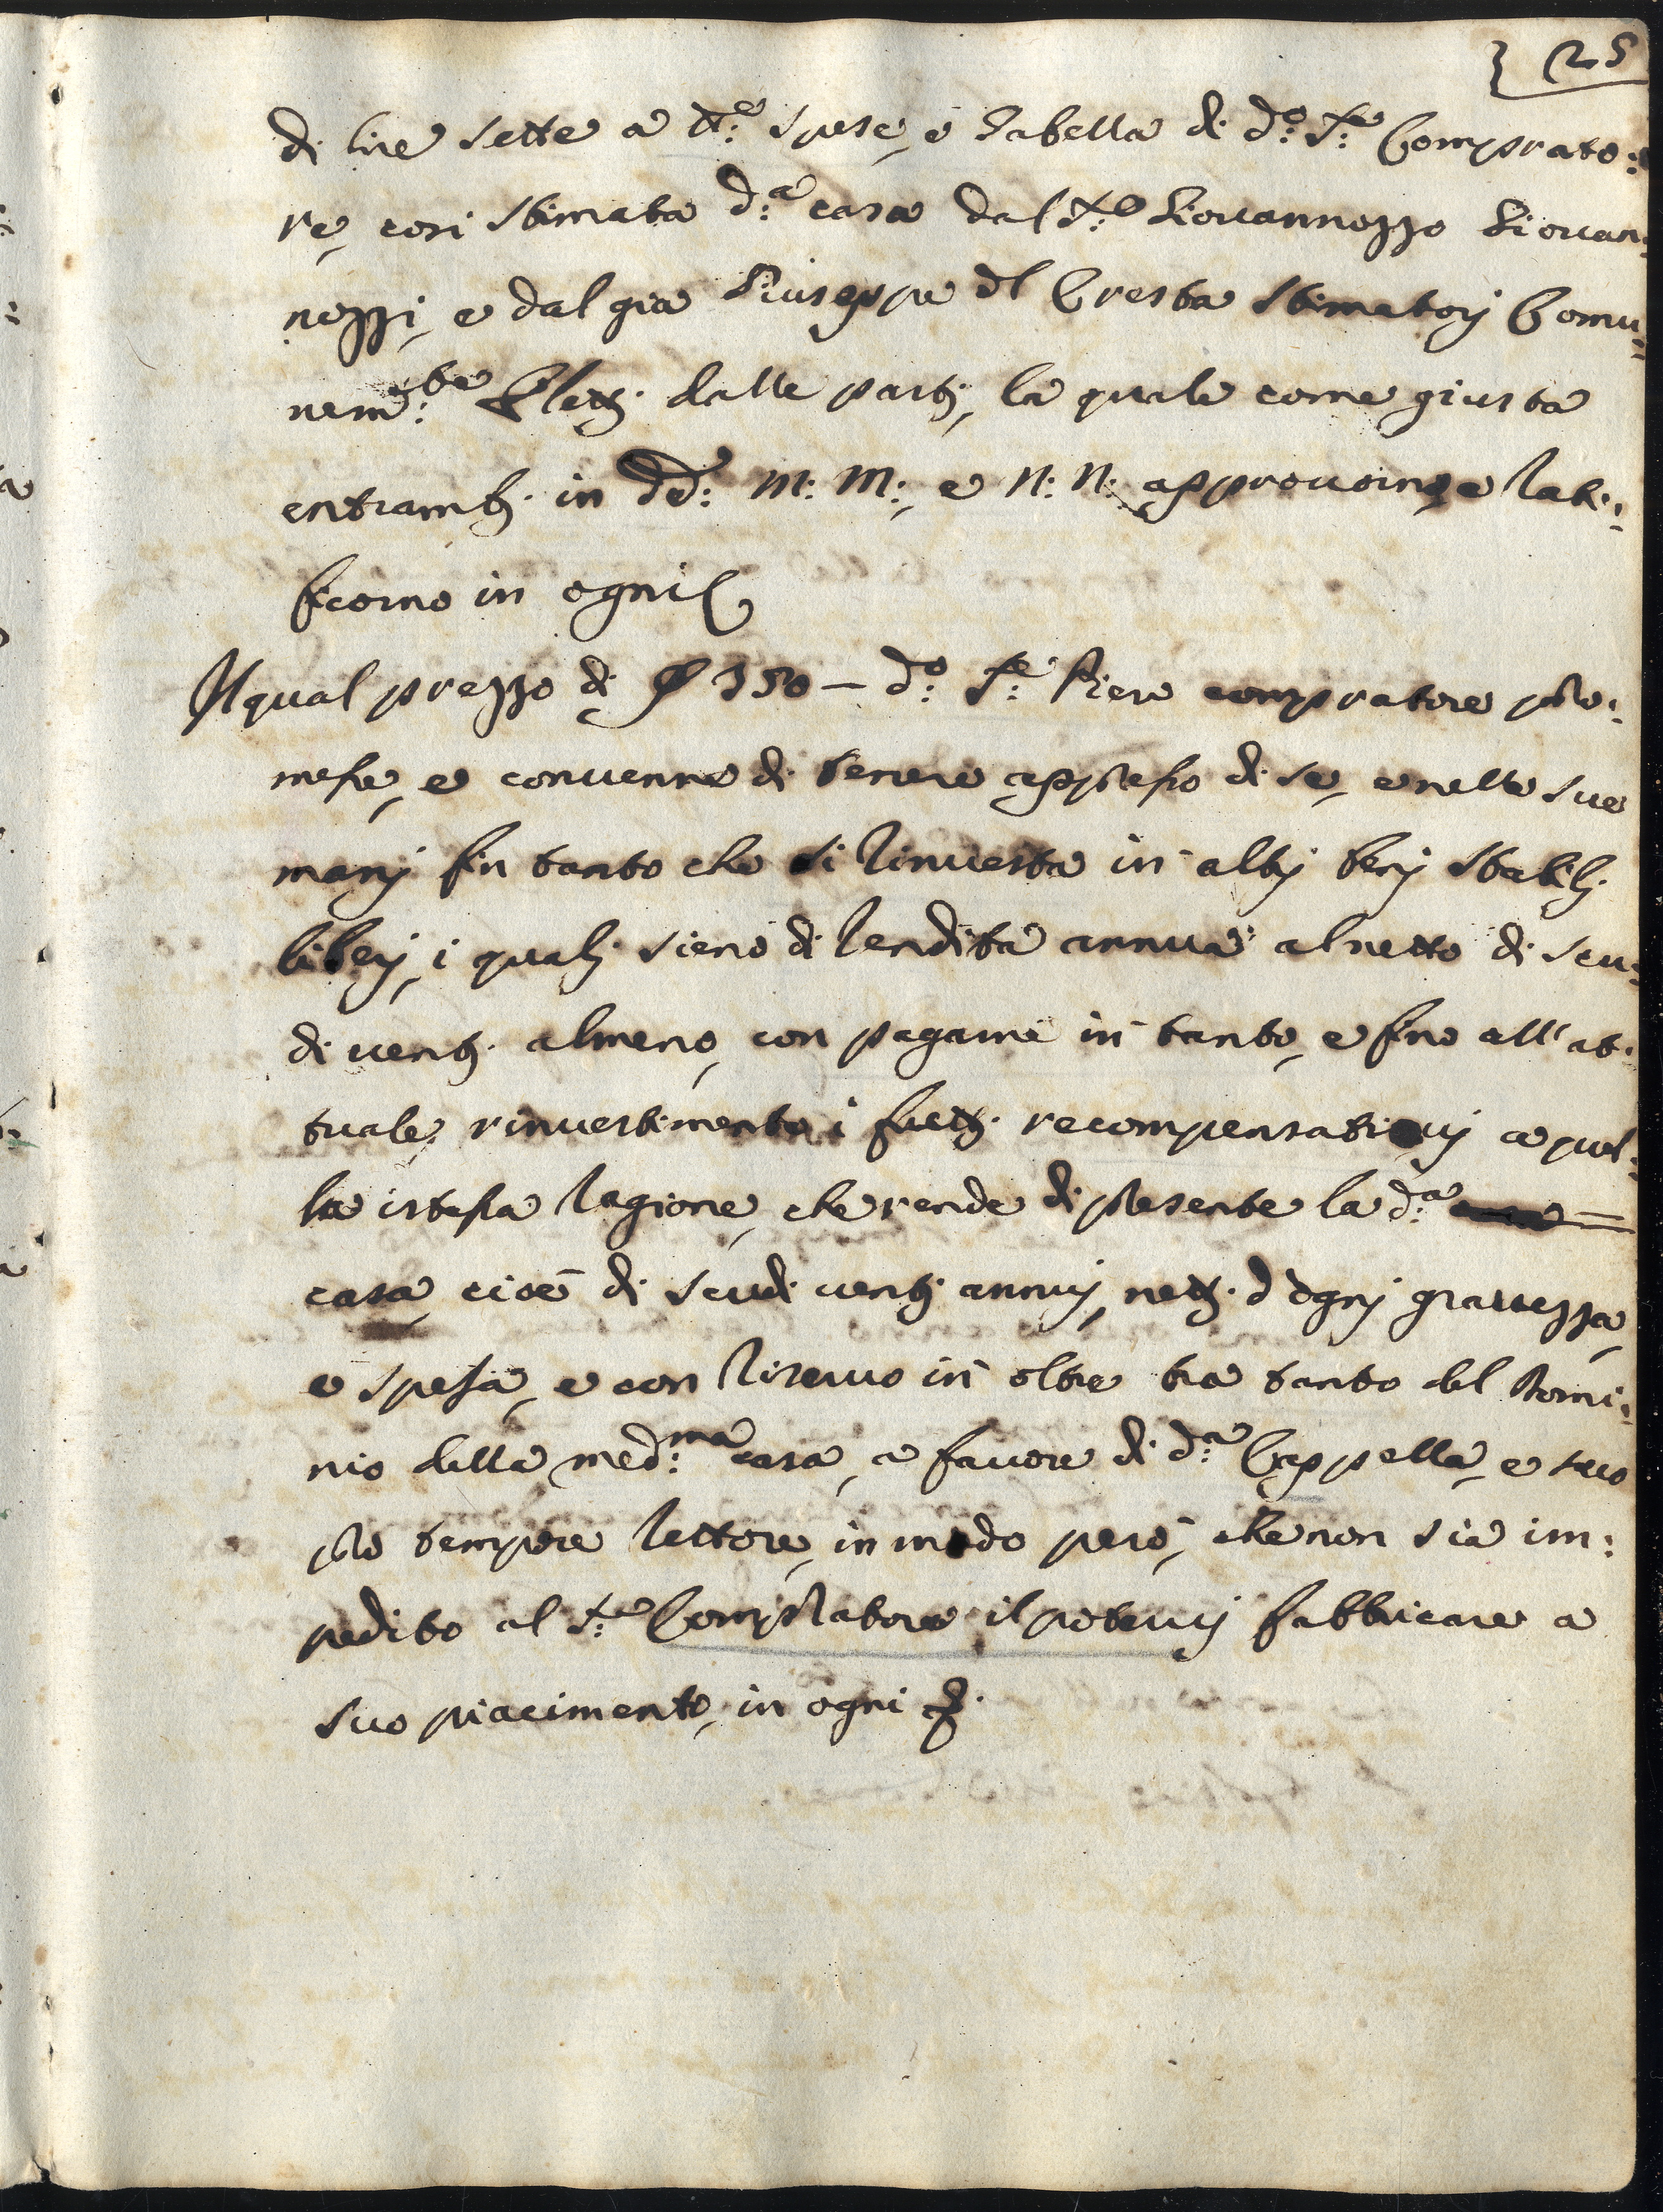 25
di lire sette a tt:e spese, e Gabella di d:o S:re Comprato:
re, cosi stimata d:a casa dal S:re Giovannozzo Giovan:
nozzi, e dal già Giuseppe del Cresta stimatorj Comu:
nem:te Elettj dalle partj, la quale come giusta
entrambj in dd: m: m:, e N: N: approvorno, e rati:
ficorno in ogni
Il qual prezzo di 350 – d:o S:re Piero compratore pro:
messe, e convenne di tenere appresso di se, e nelle sue
manj fin tanto che si rinvesta in altrj benj stabilj
liberj, i qualj sieno di rendita annua al netto di scu:
di ventj almeno, con pagarne in tanto, e fino all'at:
tuale rinvestimento i fruttj recompensativj a quel:
la istessa ragione, che rende di presente la d:a
casa, cioè di scudi ventj annuj, nettj d'ognj gravezza,
e spesa, e con riservo in oltre tra tanto del Domi:
nio della med:ma casa, a favore di d:a Cappella, e suo
pro tempore Rettore, in modo però, che non sia im:
pedito al S:re Compratore il potervj fabbricare a
suo piacimento, in ogni